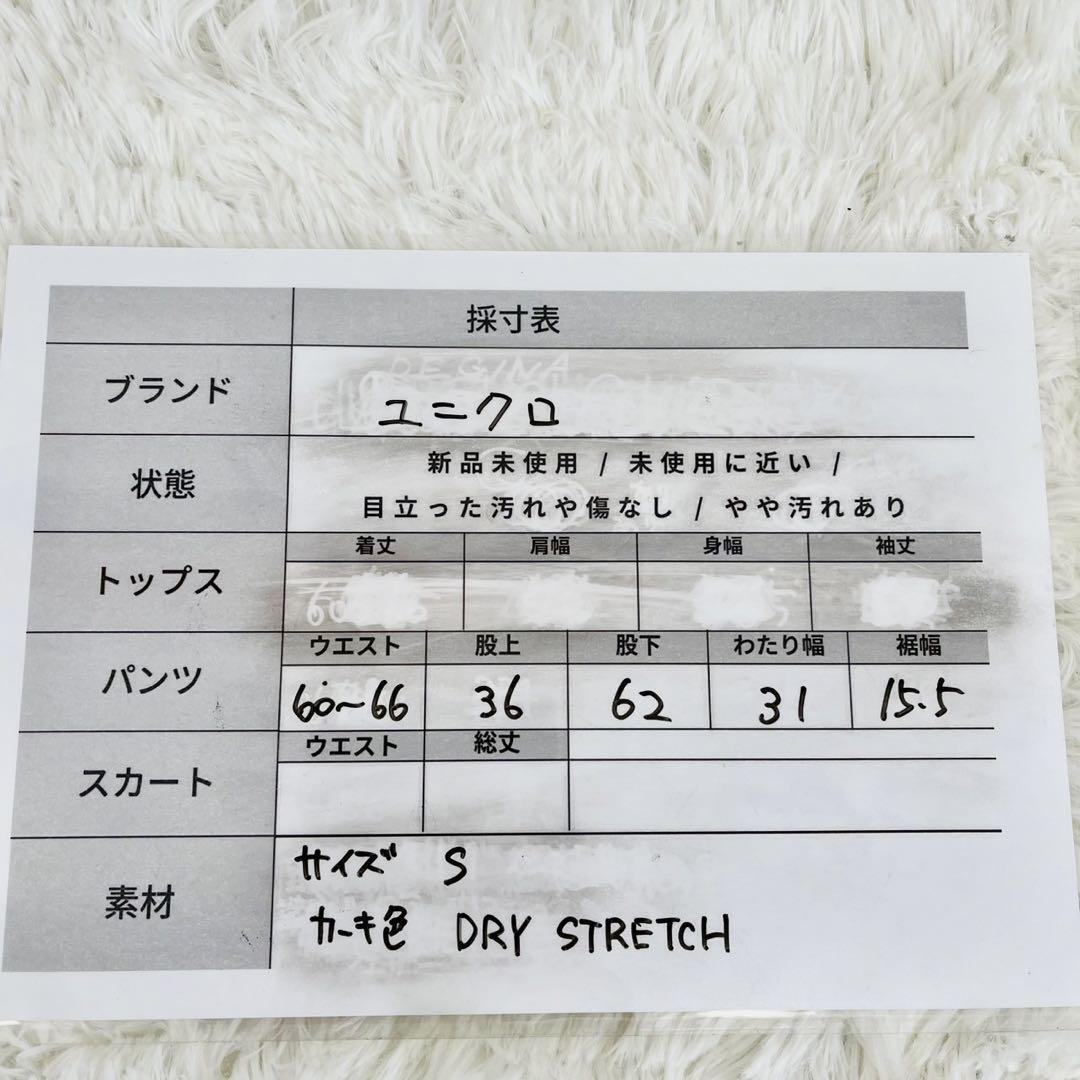 採寸表
ブランド
ユニクロ
状態
新品未使用 / 未使用に近い /
目立った汚れや傷なし / やや汚れあり
トップス
着丈 肩幅 身幅 袖丈
パンツ
ウエスト 股上 股下 わたり幅 裾幅
60~66 36 62 31 15.5
スカート
ウエスト 総丈
素材
サイズ S
カーキ色 DRY STRETCH